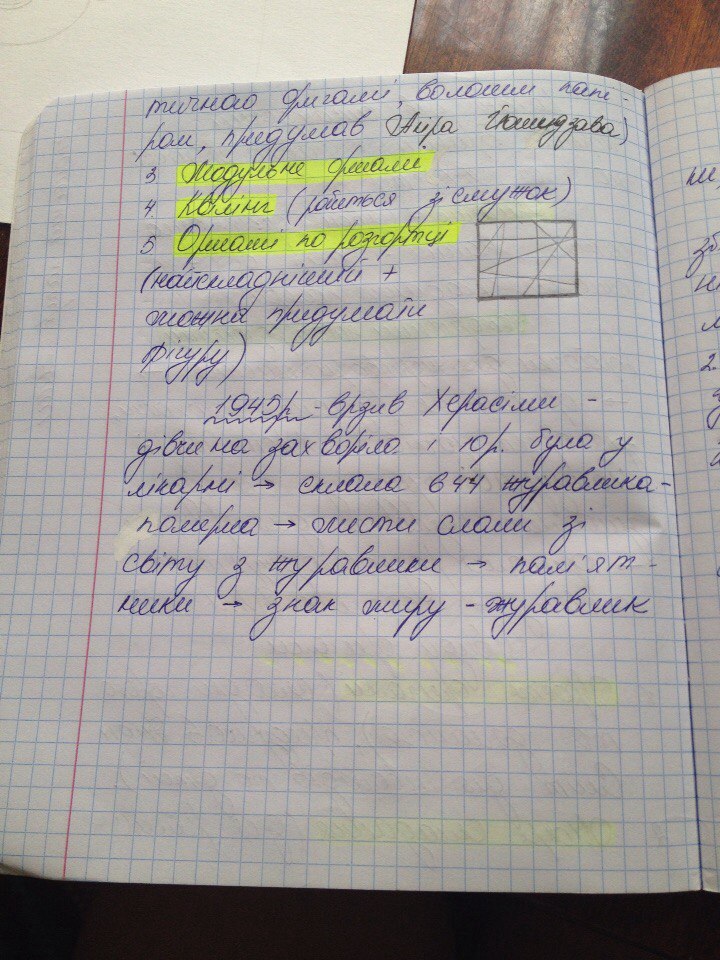 тичнао оригамі, вологим папе-
ром, придумав Акіра Йошидзава)
3 Модульне оригамі
4. Квілінг (робиться зі смужок)
5 Оригамі по розгортці
(найскладніший +
можна придумати
фігуру)
1945р. - врзив Херасіми -
дівчина захворіла і 10р. була у
лікарні → склала 644 журавлика -
померла → листи слали зі
світу з журавлики → пам'ят-
ники → знак миру - журавлик